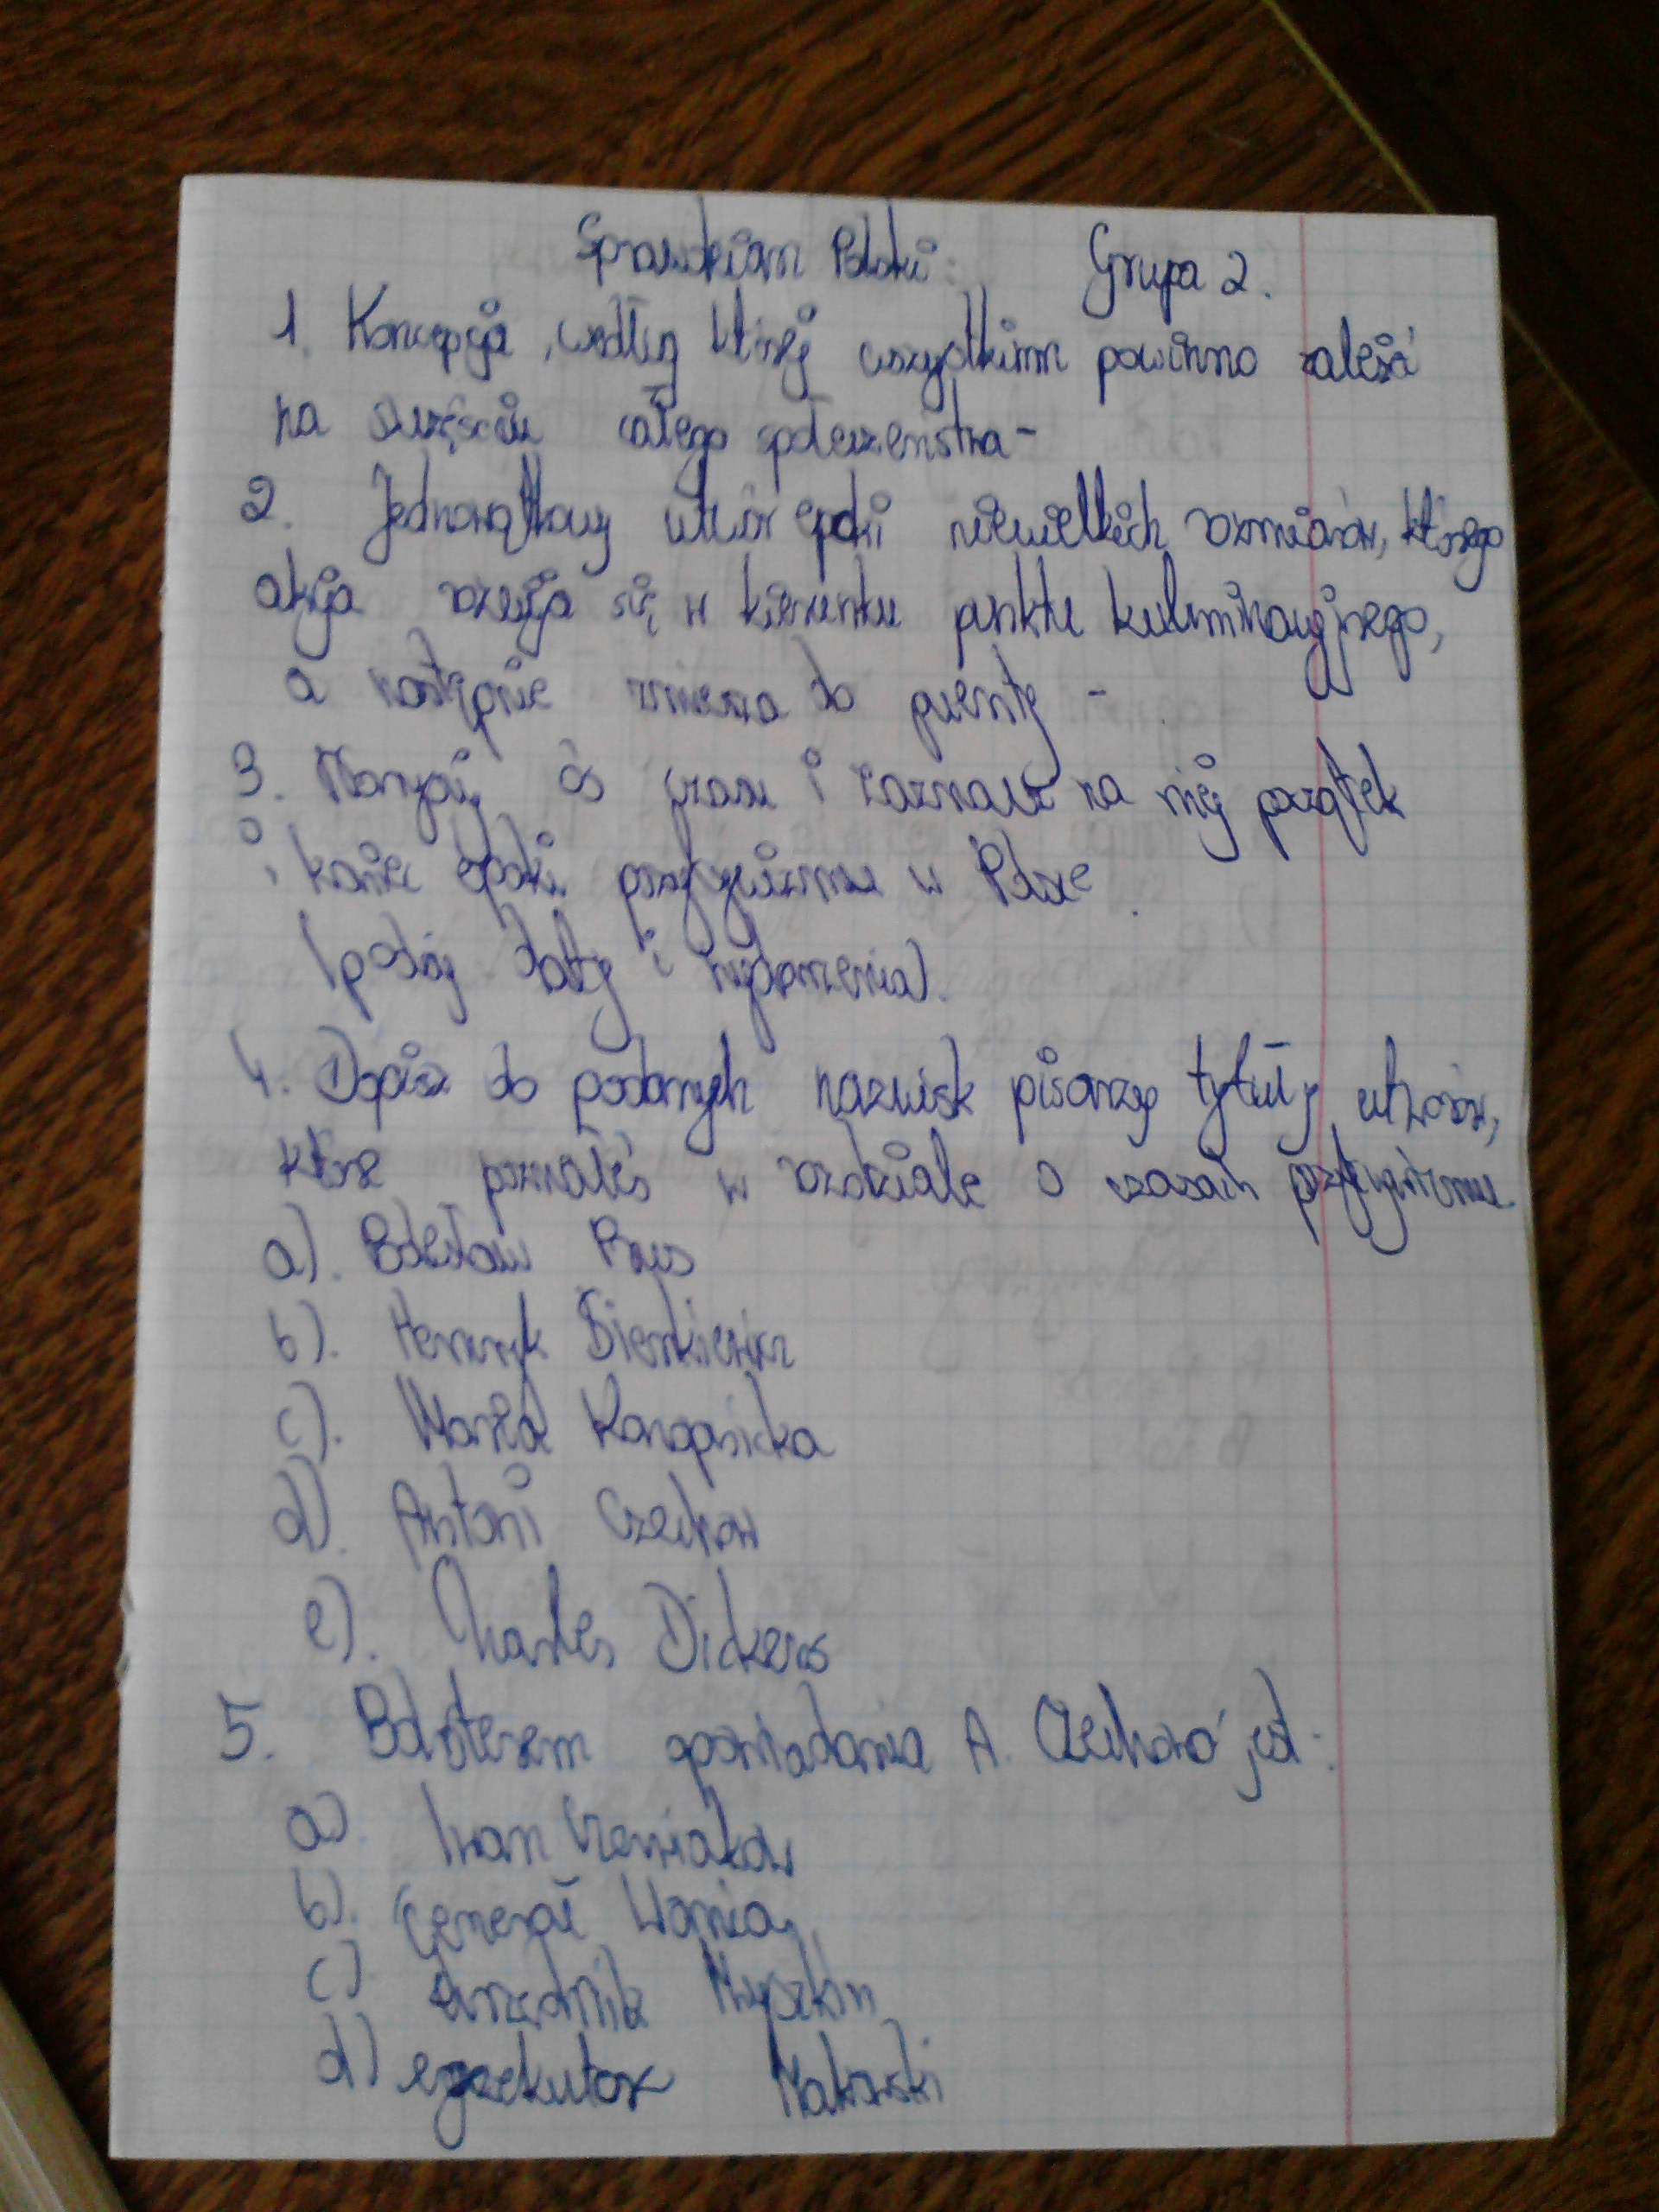 Sprawdzian Polski: Grupa 2.
1. Koncepcja, według której wszystkim powinno zależeć
na szczęściu całego społeczeństwa -
2. Jednowątkowy utwór epicki niewielkich rozmiarów, którego
akcja rozwija się w kierunku punktu kulminacyjnego,
a następnie zmierza do puenty -
3. Narysuj oś czasu i zaznacz na niej początek
i koniec epoki pozytywizmu w Polsce.
(podaj daty i wydarzenia).
4. Dopisz do podanych nazwisk pisarzy tytuły utworów,
które poznałeś w rozdziale o czasach pozytywizmu.
a). Bolesław Prus
b). Henryk Sienkiewicz
c). Maria Konopnicka
d). Antoni Czechow
e). Charles Dickens
5. Bohaterem opowiadania A. Czechowa jest:
a) Iwan Czerwiakow
b). Generał
c) urzędnik Myszkin
d) egzekutor Makowski